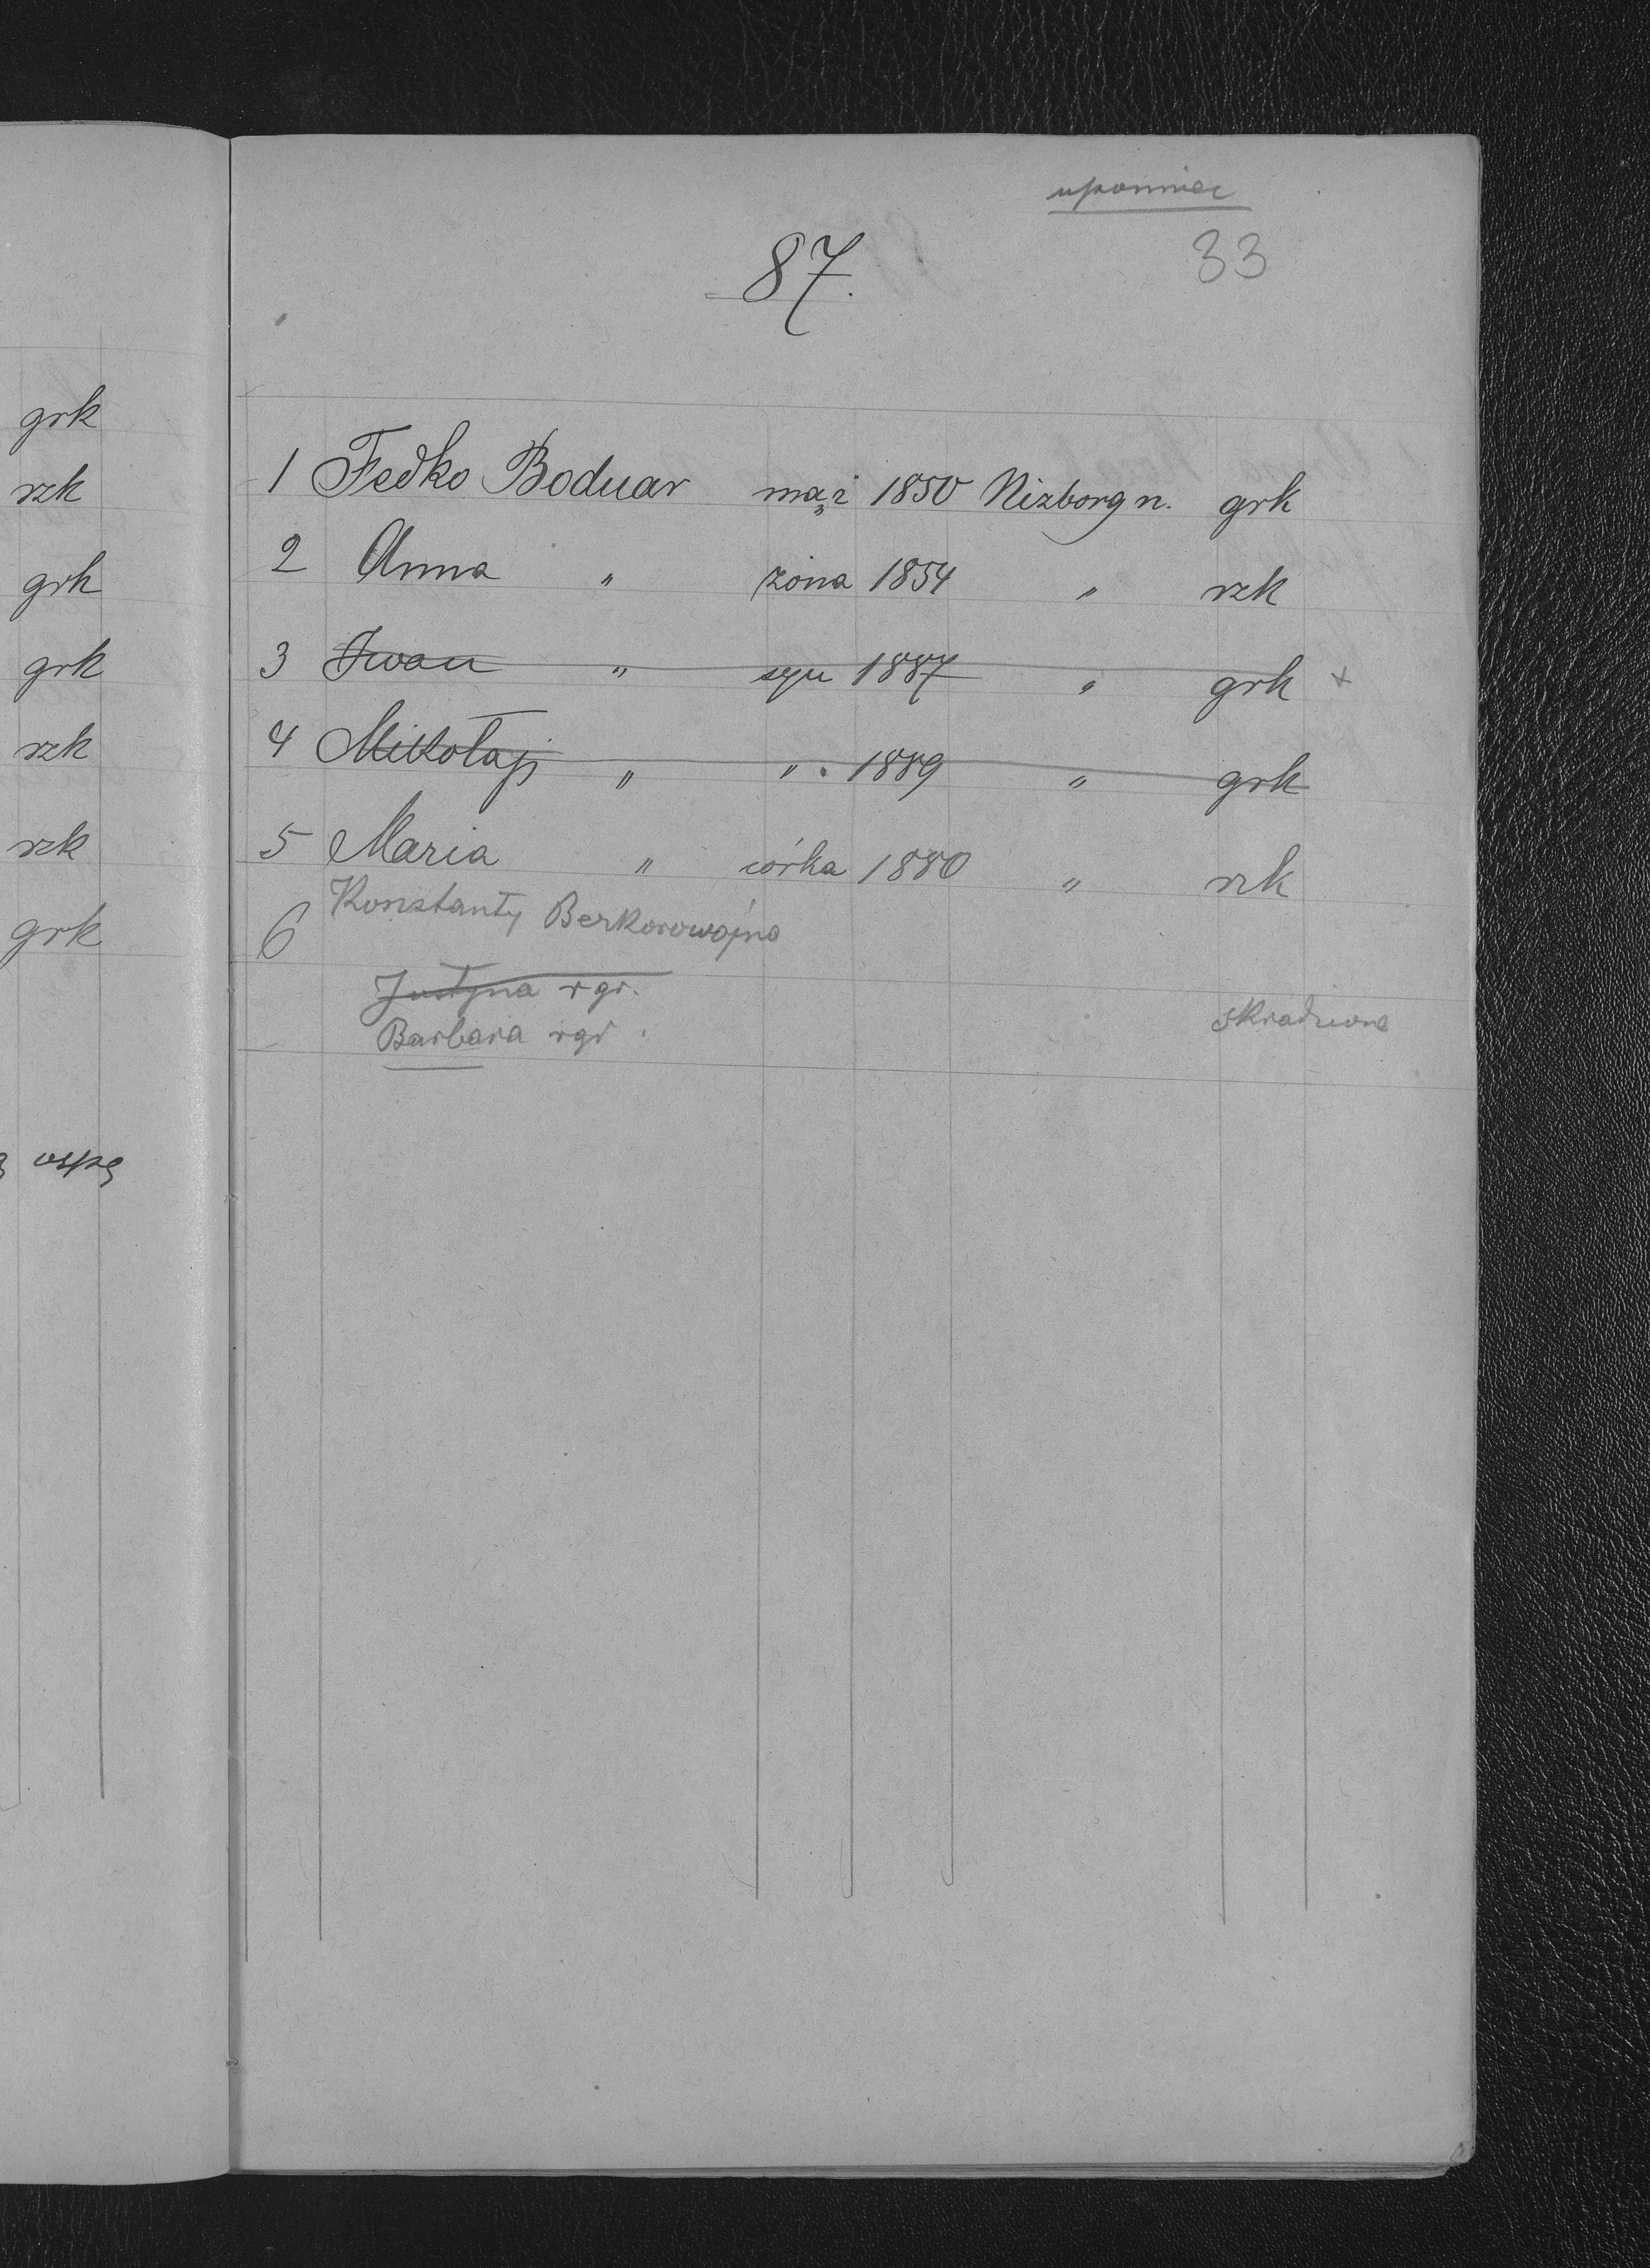 upomniec
87.
33
grk
rzk
grk
grk
rzk
rzk
grk
ospę
1 Fedko Boduar mąż 1850 Nizborg n. grk
2 Anna " żona 1854 " rzk
3 Iwan " syn 1887 " grk +
4 Mikołaj " " 1889 " grk
5 Maria " córka 1880 " rzk
6 Konstanty Berkorowajna
Justyna rgr.
Barbara rgr. skradzione